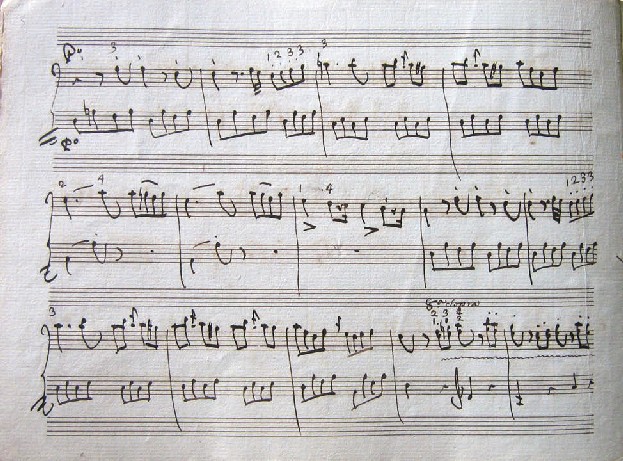 Po 3 1 2 3 3 3
Po
2 4 1 4 1 2 3 3
8va Sopra
3 2 3 4
2